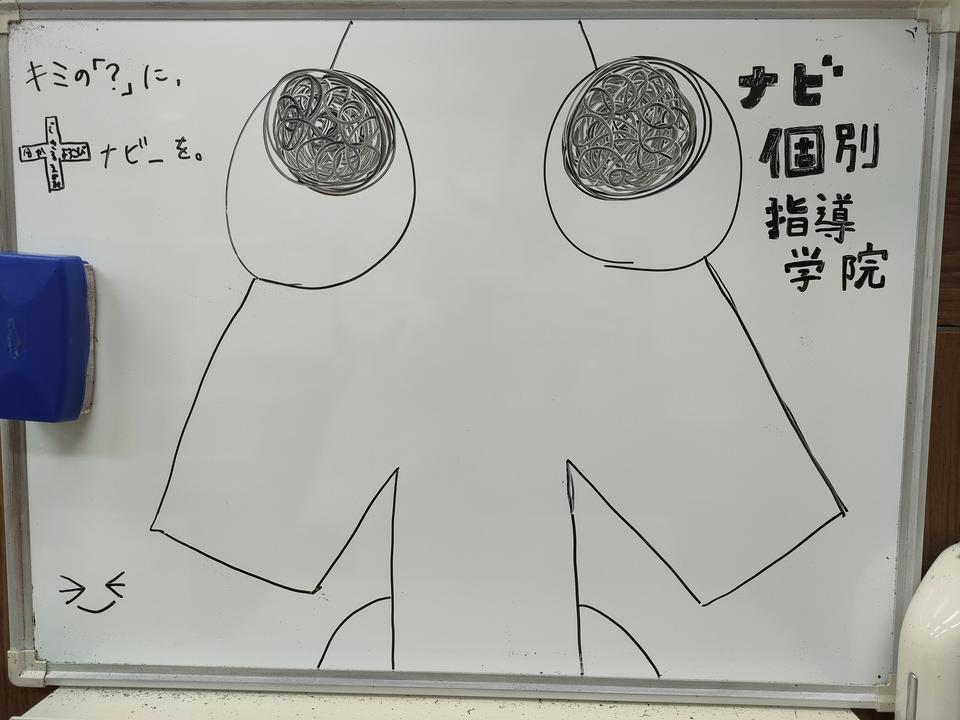 キミの「?」に、
ナビ_を。
ナビ
個別
指導
学院